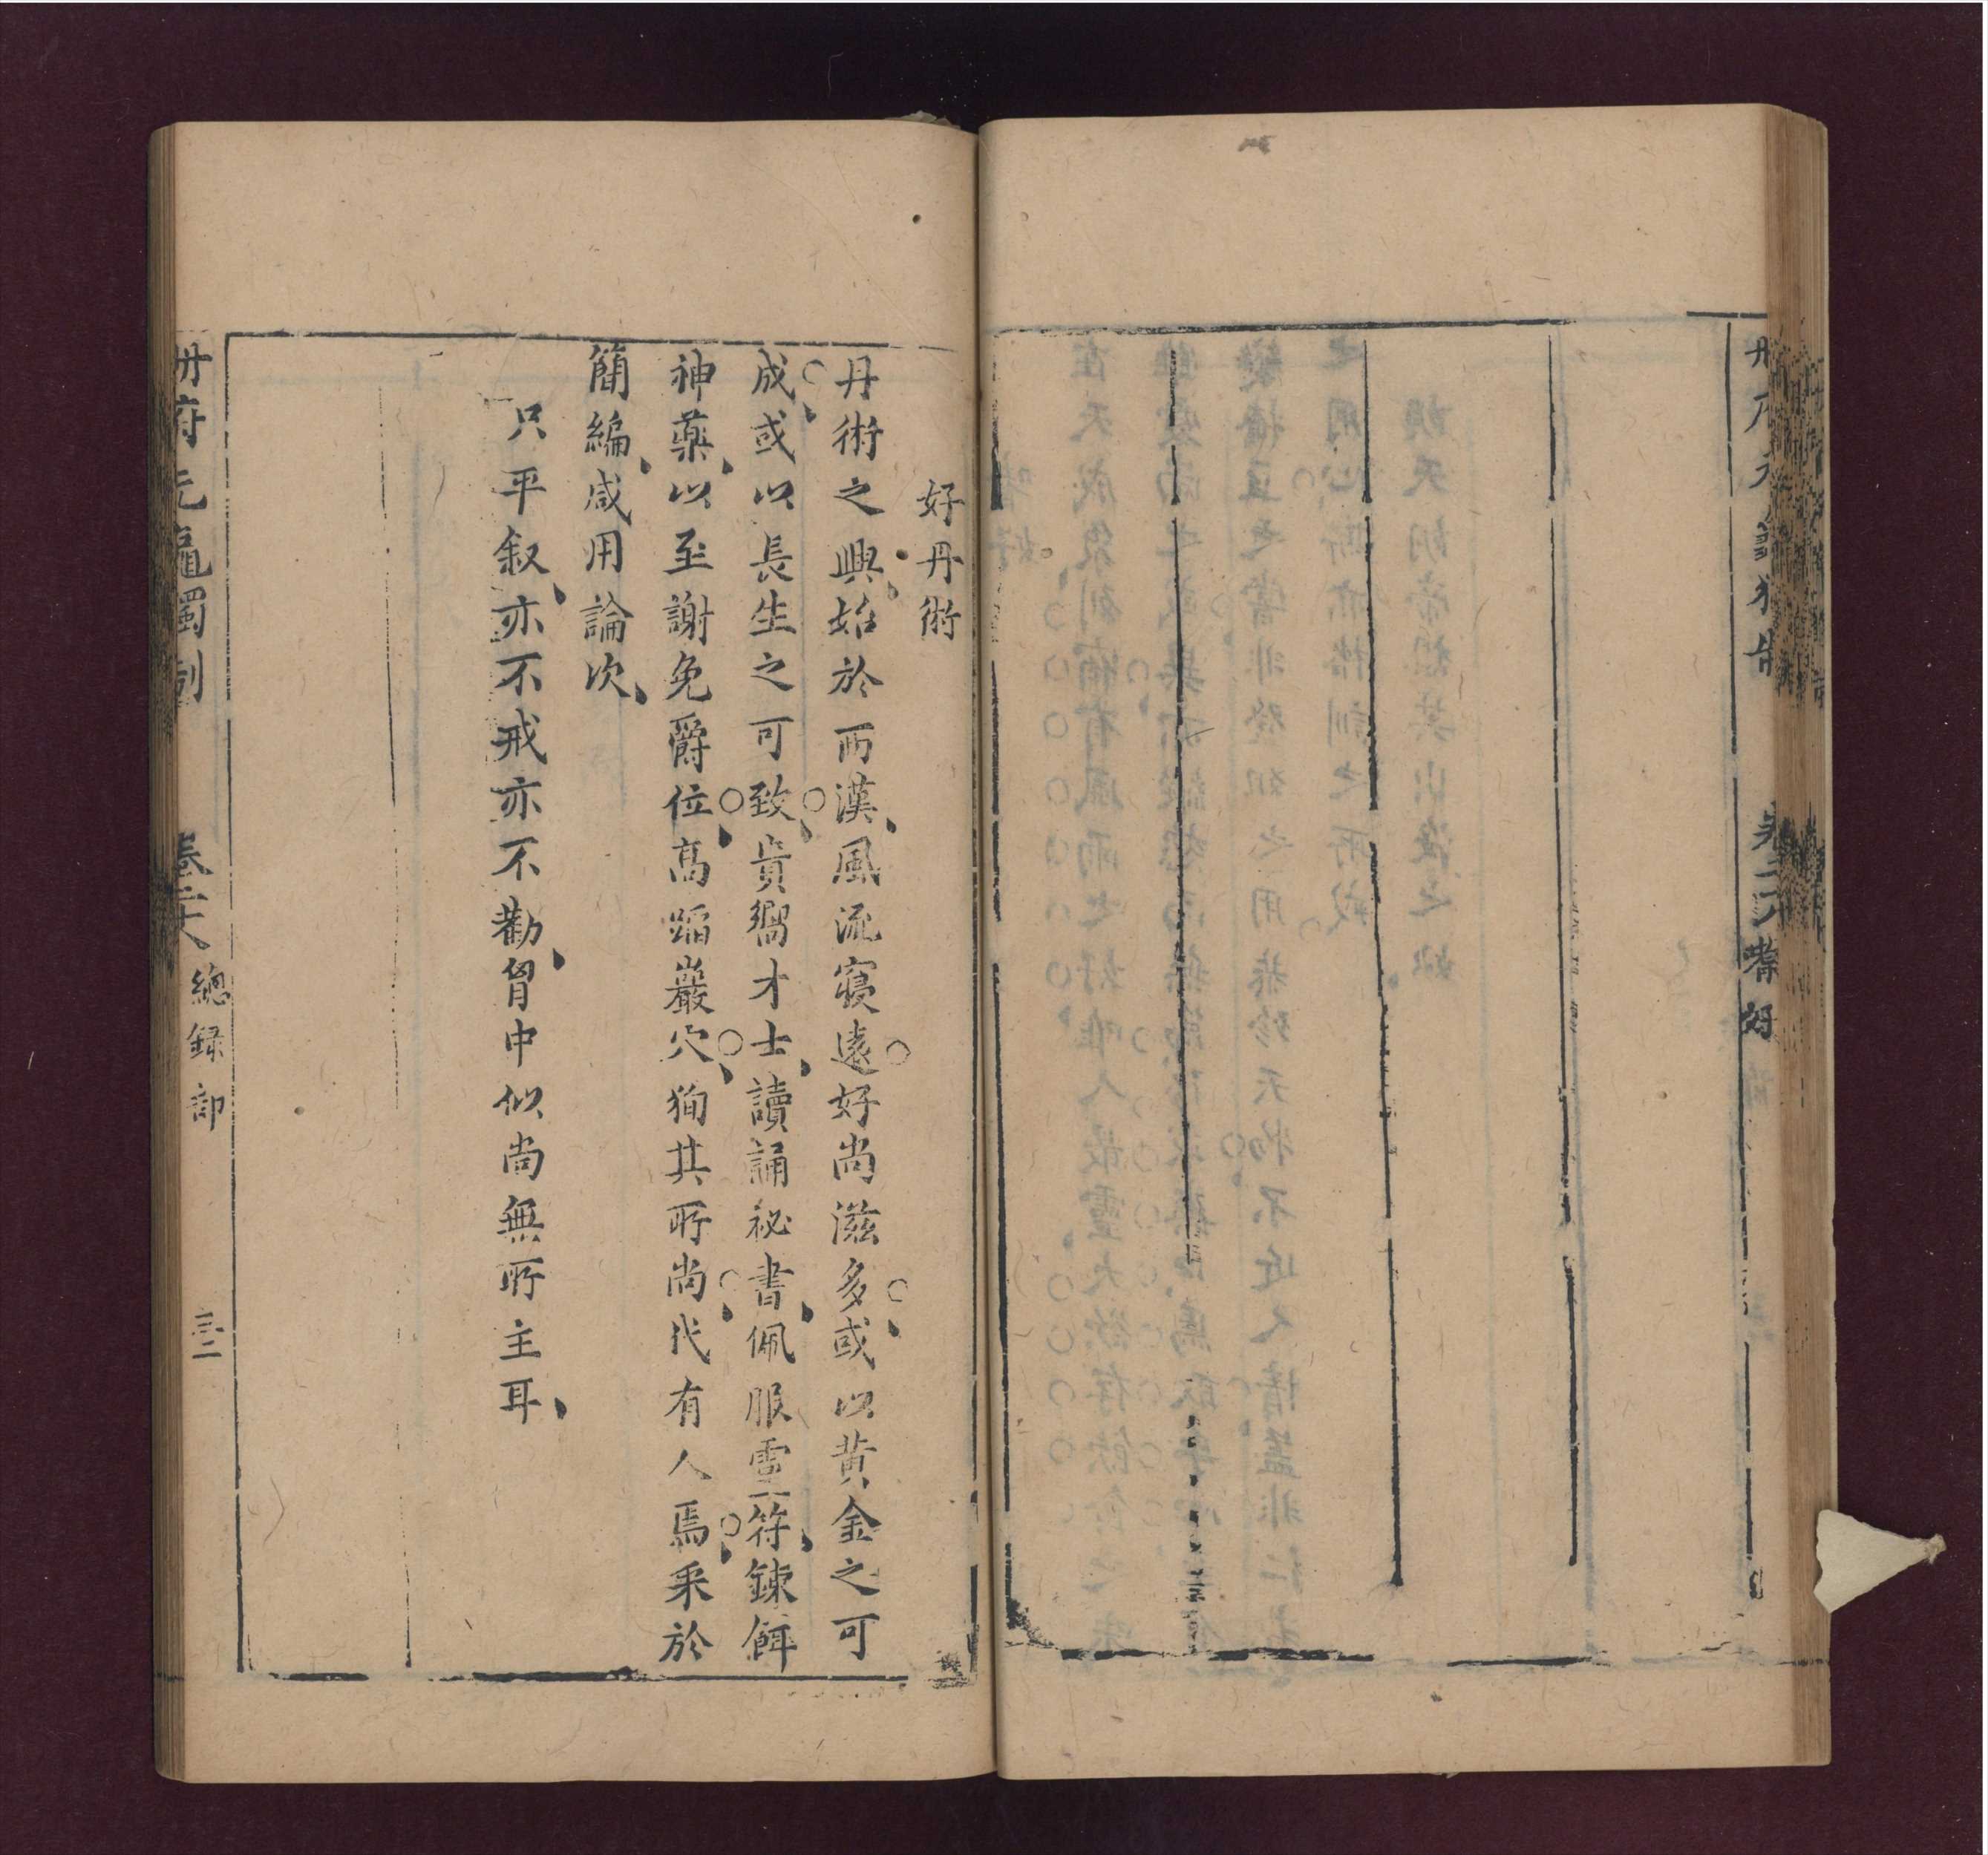 嗜好
好丹術
丹術之興始於西漢風流寖遠好尚滋多或以黄金之可
成或以長生之可致貴嚮才士讀誦祕書佩服靈符鍊餌
神藥以至謝免爵位高蹈巖穴狥其所尚代有人焉采於
簡編咸用論次
只平叙亦不戒亦不勸胷中似尚無所主耳
册府元龜獨制
卷二十八 總録部